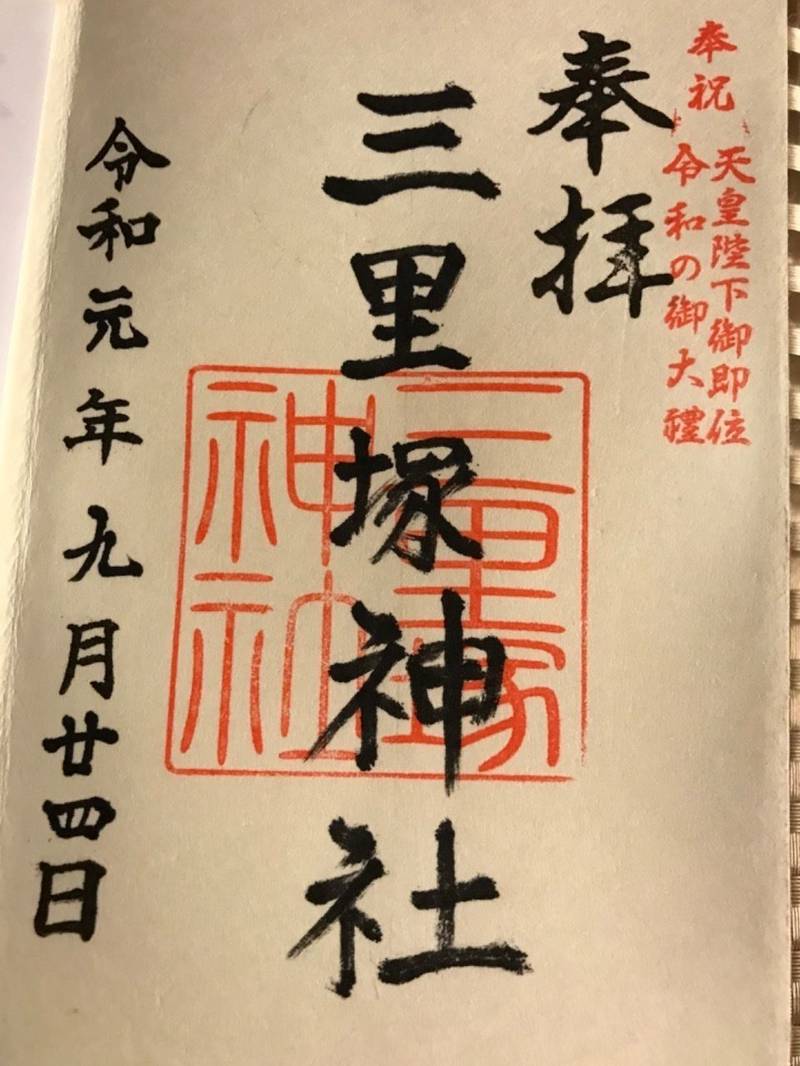 奉祝
天皇陛下御即位
令和の御大禮
奉拝
三里塚神社
三里塚
神社
令和元年九月廿四日